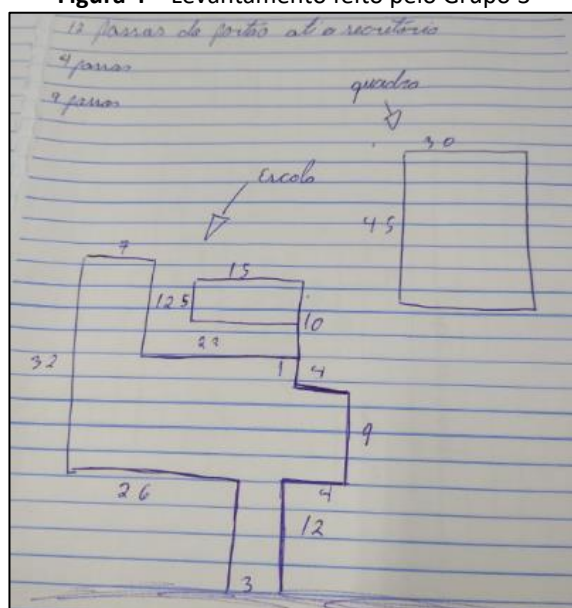 Figura 4 – Levantamento feito pelo Grupo 3
12 passos do portão até o
4 passos
9 passos
quadra
30
45
Escola
7
15
12 5
10
22
32
1 4
9
26
4
12
3